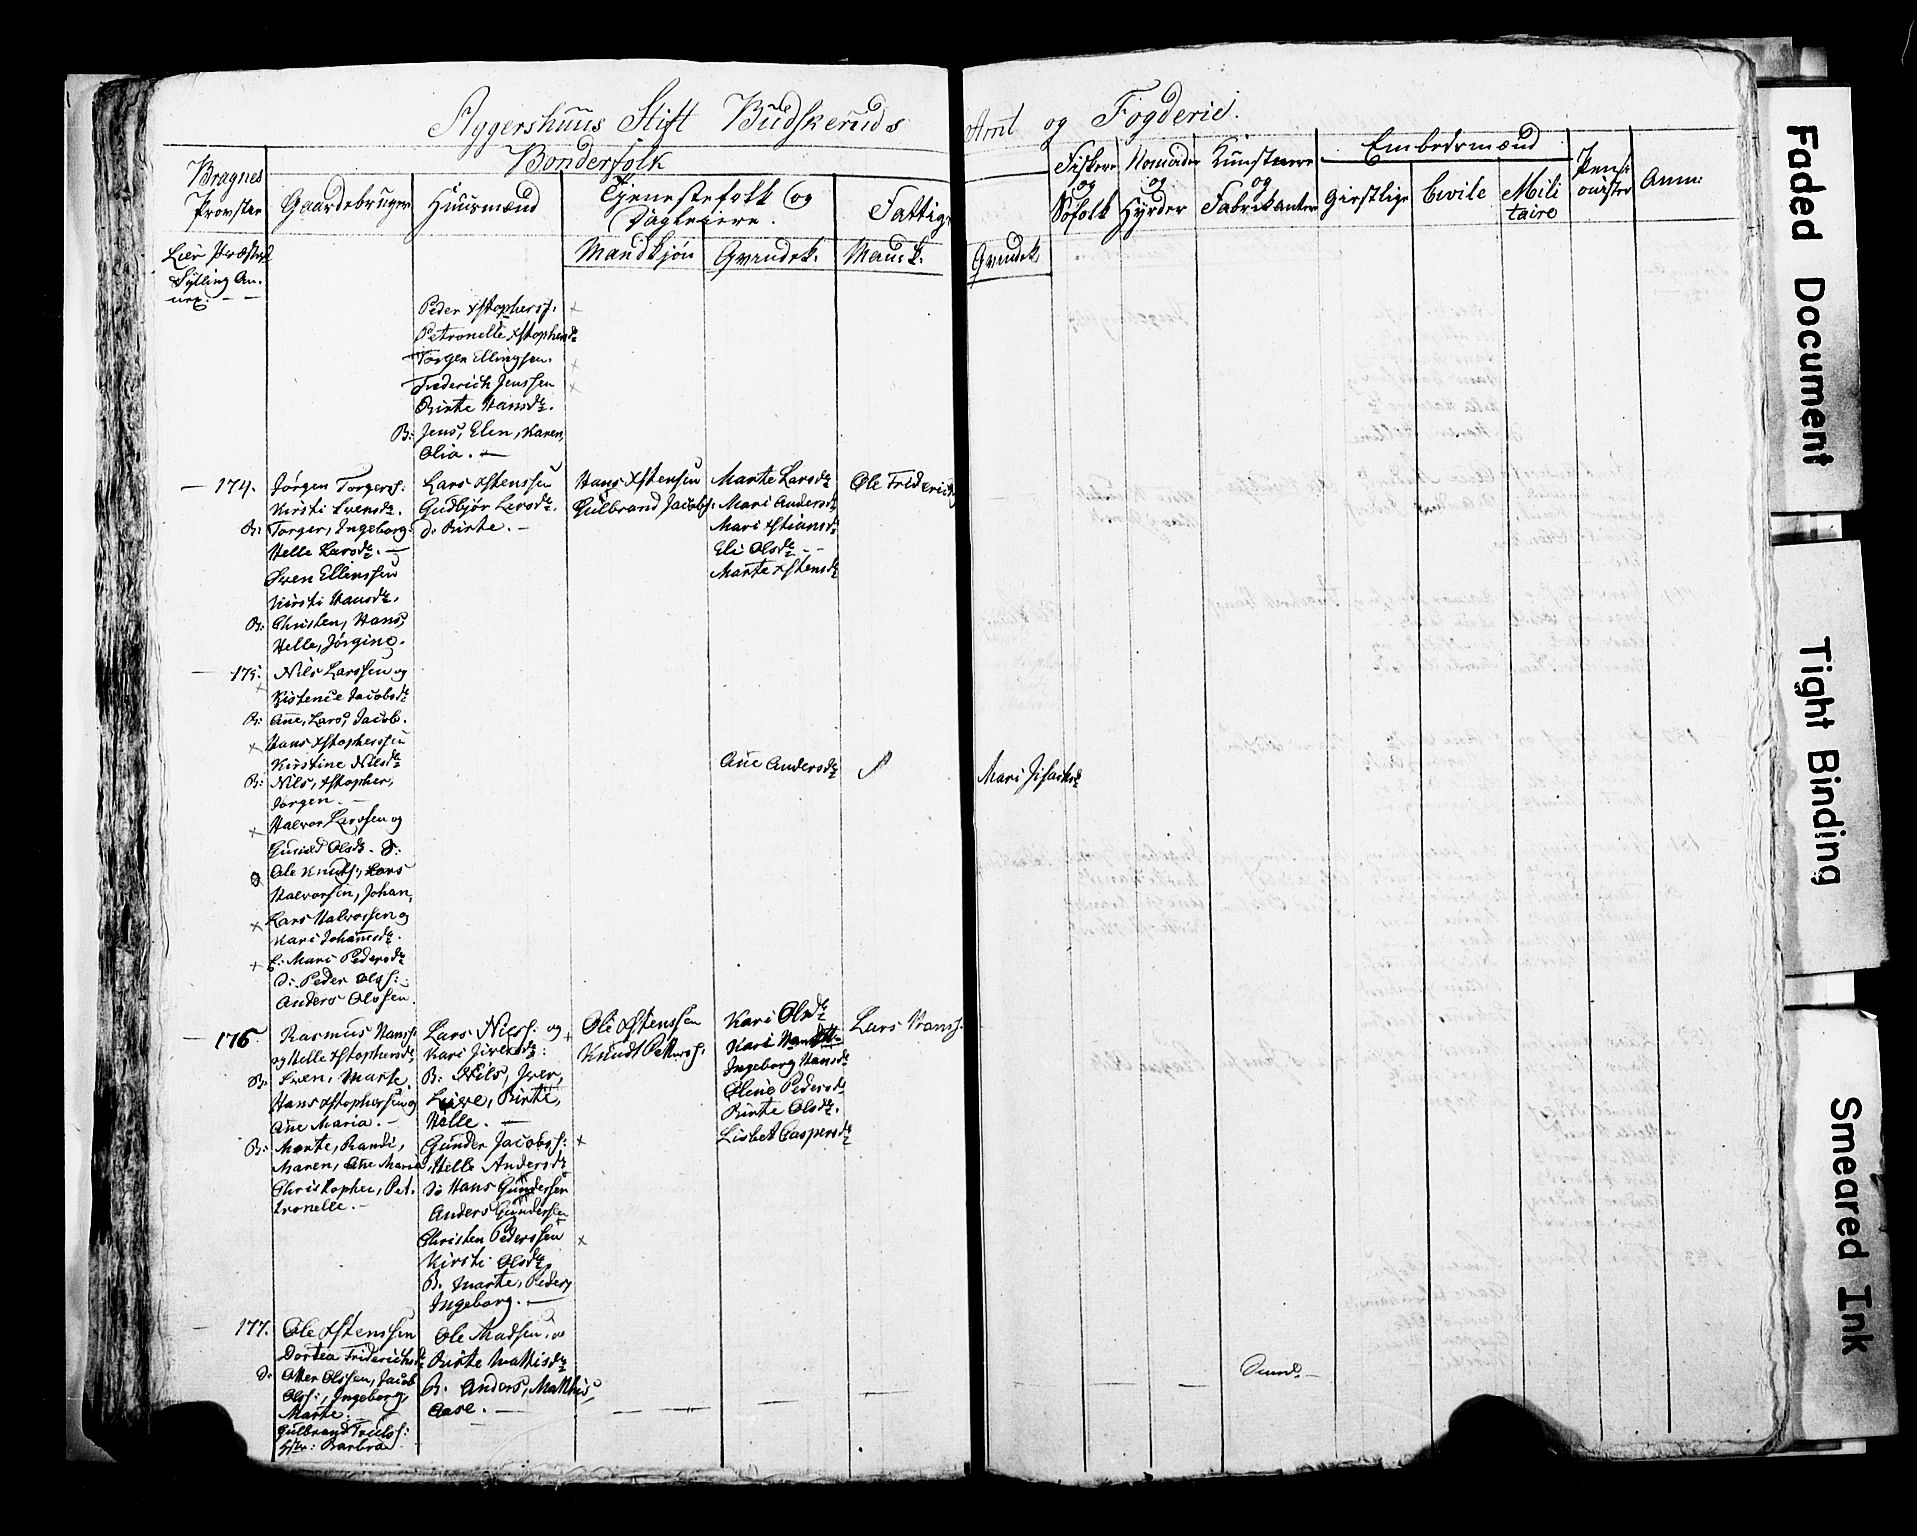 Aggershuus Stift Budskeruds Amt og Fogderie.
Bragnes
Provstie
Lier Præstegl
Sylling An.
nex. - -
Bonderfolk
Gaardebruger
Huusmænd
Tjenestefolk og
Dagleiere.
Mandkjøn
Qvindek.
Fattige
Mandk.
Qvindek.
Fiskere
og
Søfolk
Nomader
og
Hyrder
Kunstnere
og
Fabrikanter
Embedsmænd
Geistlige
Civile
Mili
taire
Pensi
onister
Anm:
Peder Xstophersf.
Petronelle Xstophersd
Torger Ellingsen.
Frederich Jenssen
Birte Hansd.
B: Jens, Elen, Karen,
Olia. -
174.
Jørgen Torgersf:
Kirsti Svensd.
B: Torger, Ingeborg
Helle Larsd. -
Sven Ellenssen
Kirsti Hansd.
B: Christen, Hans,
Helle, Jørgine.
Lars Xstenssen
Gudbjør Larsd.
D. Birte. -
Hans Xstensen
Gulbrand Jacobsf:
Marte Larsd.
Mari Andersd
Mari Xstiansd
Eli Olsd. -
Marte Xstensd
Ole Frederichs
175.
Nils Larssen og
Kistence Jacobsd
B: Ane, Lars, Jacob.
Hans Xstopherssen
Kirstine Nilsd
B: Nils, Xstopher,
Jørgen. -
Halvor Larssen og
Olsd. S:
Ole Knuts, Lars
Halvorsen, Johan,
Lars Halvorssen og
Kari Johansd.
E: Mari Pedersd
S: Peder Olsf:
Anders Olssen.
Ane Andersd
Mari
176.
Rasmus Hansf
og Helle Xstophersd
B: Sven, Marte.
Hans Xstophersen og
Ane Maria. -
B: Marte, Randi,
Maren, Ane Maria
Christopher, Pet.
tronelle. -
Lars Nilsf: og
Kari Iversd:
B: Nils, Iver,
Live, Birte,
Helle. -
Gunder Jacobsf:
Helle Andersd
S: Hans Gundersen
Anders Gundersen
Christen Pederssen
Kirsti Olsd
B. Marte, Peder,
Ingeborg. -
Ole Xstenssen
Knudt Pettersf.
Kari Olsd
Kari
Ingeborg Hansd
Oline Pedersd
Birte Olsd.
Lisbet Caspersd
Lars Hansf.
177.
Ole Xstenssen
Dortea Friderichsd
S. Otter Olssen, Jacob
Olsf:, Ingeborg,
Marte. -
Gulbrand Truls f:
Hstr: Barbra
Ole Madsen, og
Birte Mattisd
B. Anders, Matthis,
Aase. -
Summa. -
Faded Document
Tight Binding
Smeared Ink